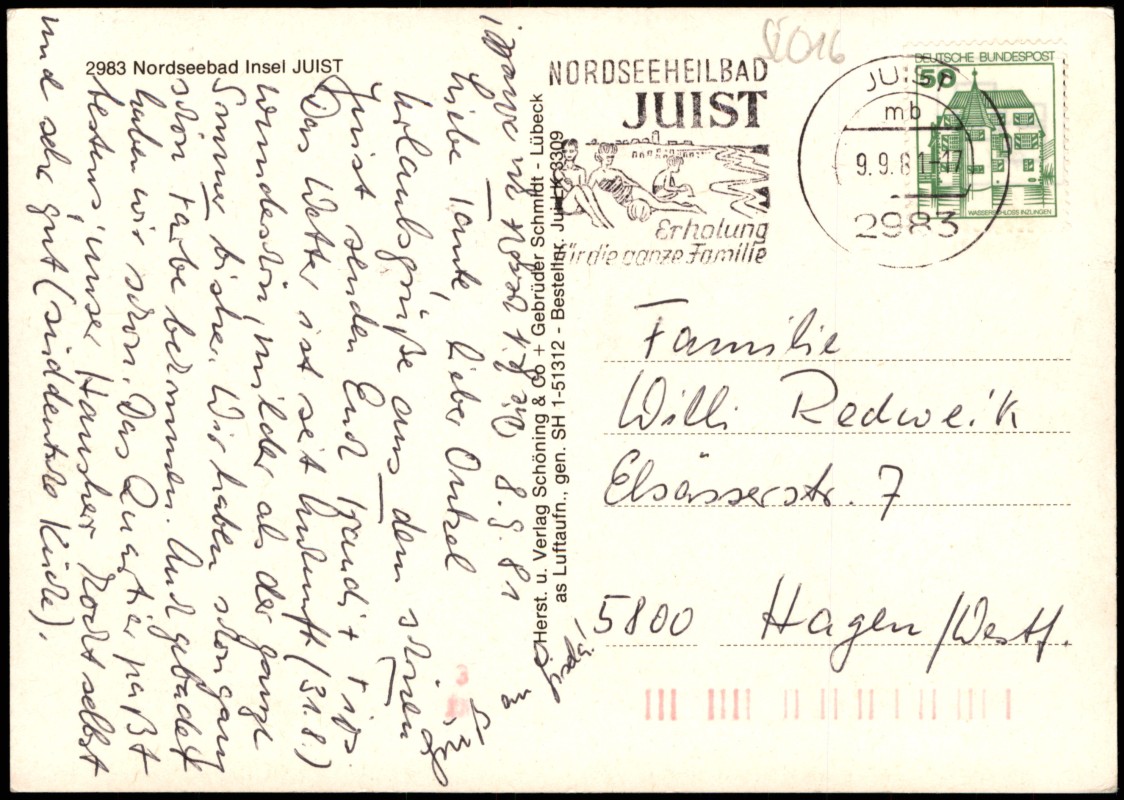 2983 Nordseebad Insel JUIST
Die 8.9.81
Liebe Tante, lieber Onkel
Urlaubsgrüße aus dem schönen
Juist senden Euch
Das Wetter ist seit Ankunft (31.8.)
wunderschön, milder als der ganze
Sommer bisher. Wir haben schon
Farbe bekommen. Auch gebadet
haben wir schon. Das Quartier paßt
bestens, unser Hausherr kocht selbst
und sehr gut (süddeutsche Küche).
Herst. u. Verlag Schöning & Co + Gebrüder Schmidt - Lübeck
as Luftaufn., gen. SH 1-51312 - Bestellnr. Jui LK 3309
NORDSEEHEILBAD
JUIST
Erholung
für die ganze Familie
JUIST
mb
9.9.81-17
2983
DEUTSCHE BUNDESPOST
50
WASSERSCHLOSS INZLINGEN
Familie
Willi Redweik
Elsässerstr. 7
5800 Hagen/Westf.